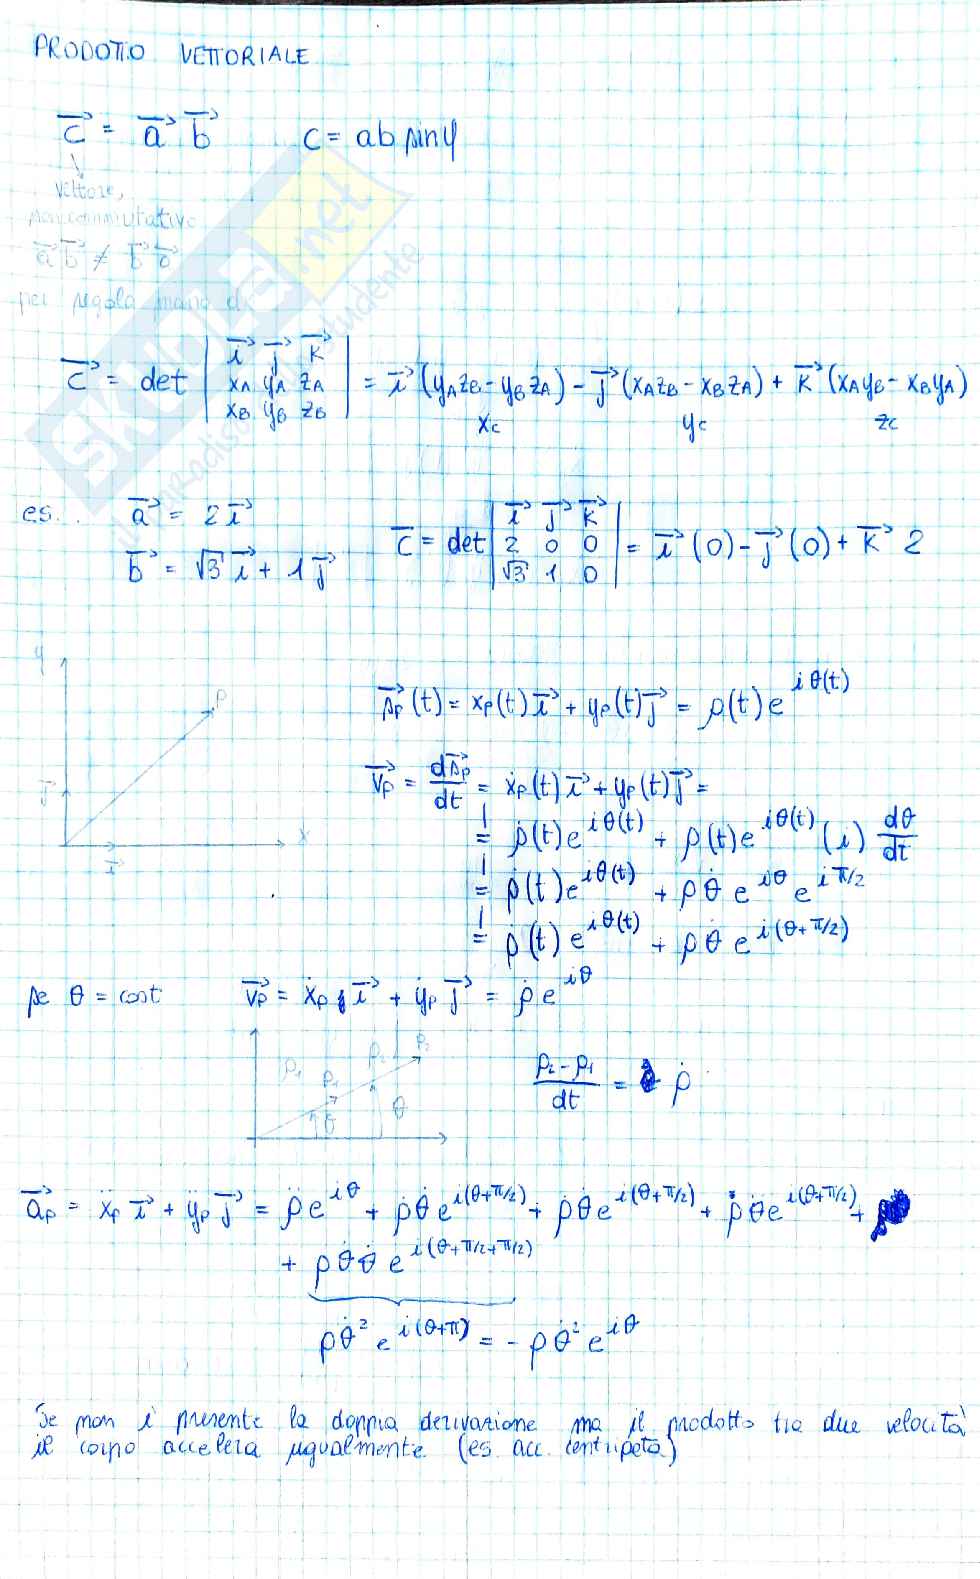 PRODOTTO VETTORIALE
c⃗ = a⃗ b⃗   c = ab sinφ
vettore,
non commutativo
a⃗ b⃗ ≠ b⃗ a⃗
per regola mano
c⃗ = det | i⃗ j⃗ k⃗ | = i⃗ (yAzB - yBzA) - j⃗ (xAzB - xBzA) + k⃗ (xAyB - xByA)
xA yA zA
xB yB zB
xc yc zc
es. a⃗ = 2 i⃗
b⃗ = √3 i⃗ + 1 j⃗
c⃗ = det | i⃗ j⃗ k⃗ | = i⃗ (0) - j⃗ (0) + k⃗ 2
2 0 0
√3 1 0
y
P
j⃗
i⃗
x
s⃗p (t) = xp(t) i⃗ + yp(t) j⃗ = ρ(t) e^{iθ(t)}
v⃗p = ds⃗p/dt = ẋp(t) i⃗ + ẏp(t) j⃗ =
= ρ̇(t) e^{iθ(t)} + ρ(t) e^{iθ(t)} (i) dθ/dt
= ρ̇(t) e^{iθ(t)} + ρ θ̇ e^{iθ} e^{iπ/2}
= ρ̇(t) e^{iθ(t)} + ρ θ̇ e^{i(θ+π/2)}
se θ = cost v⃗p = ẋp i⃗ + ẏp j⃗ = ρ̇ e^{iθ}
ρ1
P1
ρ2
P2
θ
θ
ρ2 - ρ1/dt = ρ̇
a⃗p = ẍp i⃗ + ÿp j⃗ = ρ̈ e^{iθ} + ρ̇ θ̇ e^{i(θ+π/2)} + ρ̇ θ̇ e^{i(θ+π/2)} + ρ θ̈ e^{i(θ+π/2)} +
+ ρ θ̇ θ̇ e^{i(θ+π/2+π/2)}
ρ θ̇² e^{i(θ+π)} = - ρ θ̇² e^{iθ}
Se non è presente la doppia derivazione ma il prodotto tra due velocità
il corpo accelera ugualmente (es. acc. centripeta)
SKUOLA.net